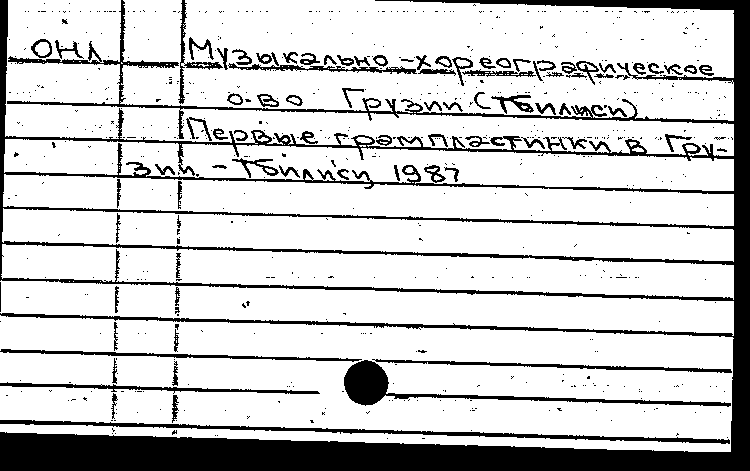 ОНЛ Музыкально-хореографическое
о-во Грузии (Тбилиси).
Первые грампластинки в Гру-
зии. - Тбилиси, 1987